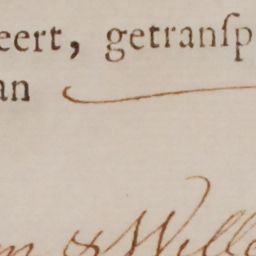 eert, getranſp
an
m & Wille